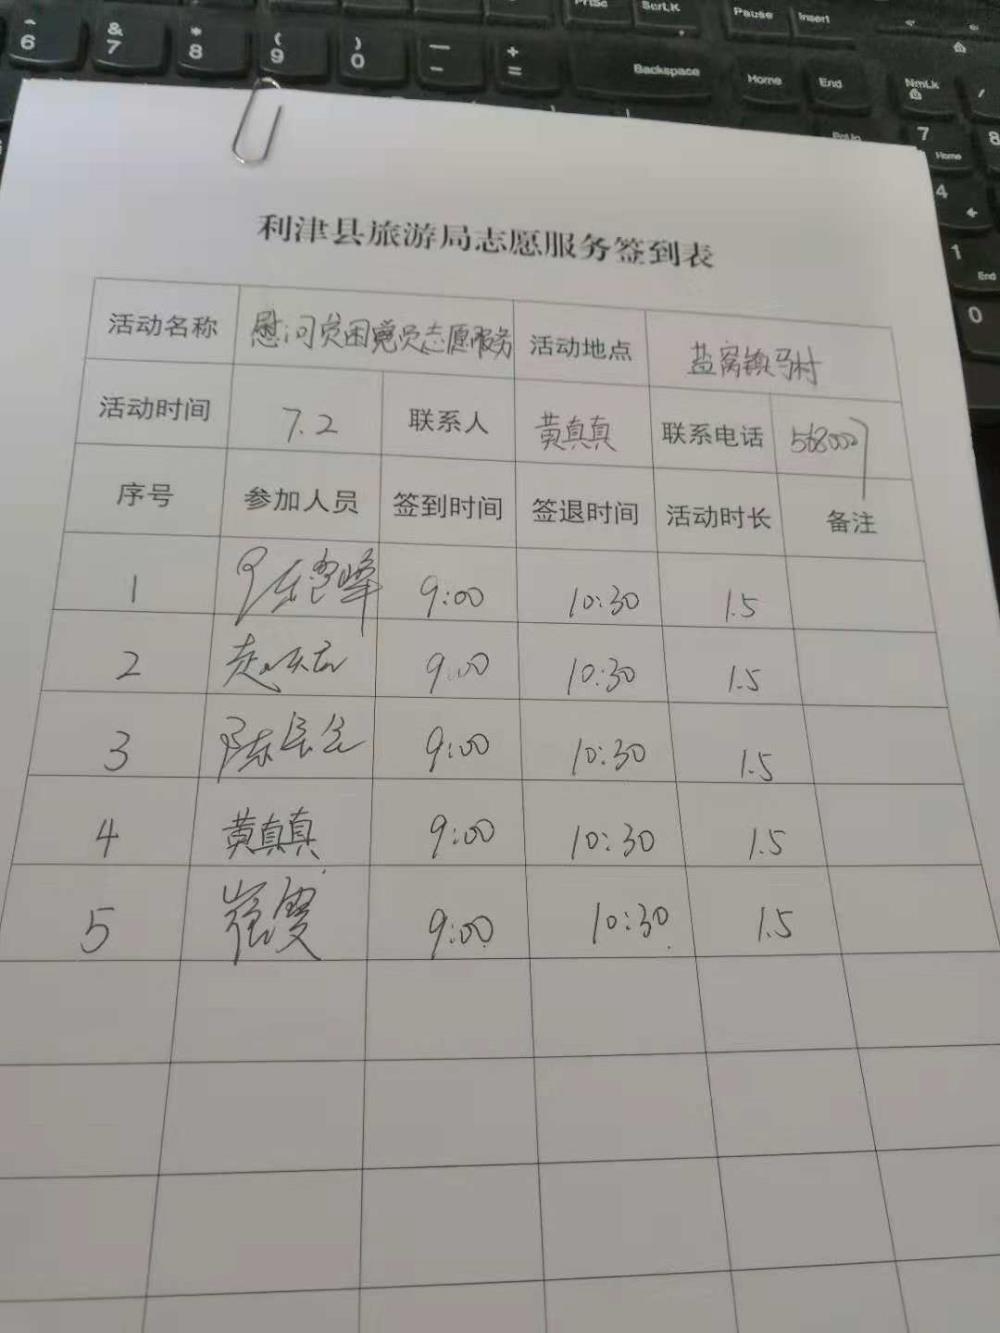 6 & 7 * 8 ( 9 ) 0 — - + = Backspace
PrtSc ScrLK Pause Insert
Home End NmLk
7 Home 8
4
1 End
0
利津县旅游局志愿服务签到表
活动名称 慰问贫困党员志愿服务 活动地点 盐窝镇马村
活动时间 7.2 联系人 黄真真 联系电话 5680027
序号 参加人员 签到时间 签退时间 活动时长 备注
1 9:00 10:30 1.5
2 9:00 10:30 1.5
3 陈 9:00 10:30 1.5
4 黄真真 9:00 10:30 1.5
5 崔雯 9:00 10:30 1.5